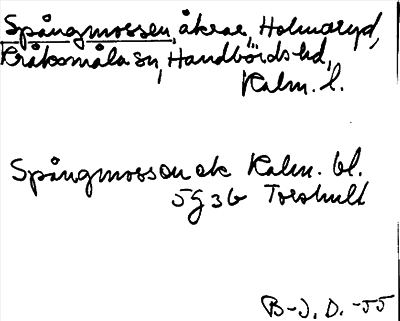 Spångmossen, åkrar, Holmaryd,
Kråksmåla sn, Handbörds hd,
Kalm. l.
Spångmossen ek Kalm. bl.
5G 3b Torshult
B-J, D. -55